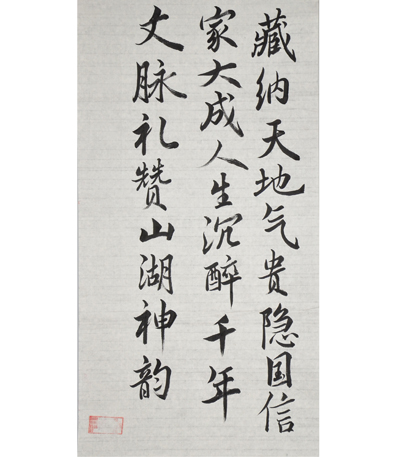 藏纳天地气贵隐国信
家大成人生沉醉千年
文脉礼赞山湖神韵